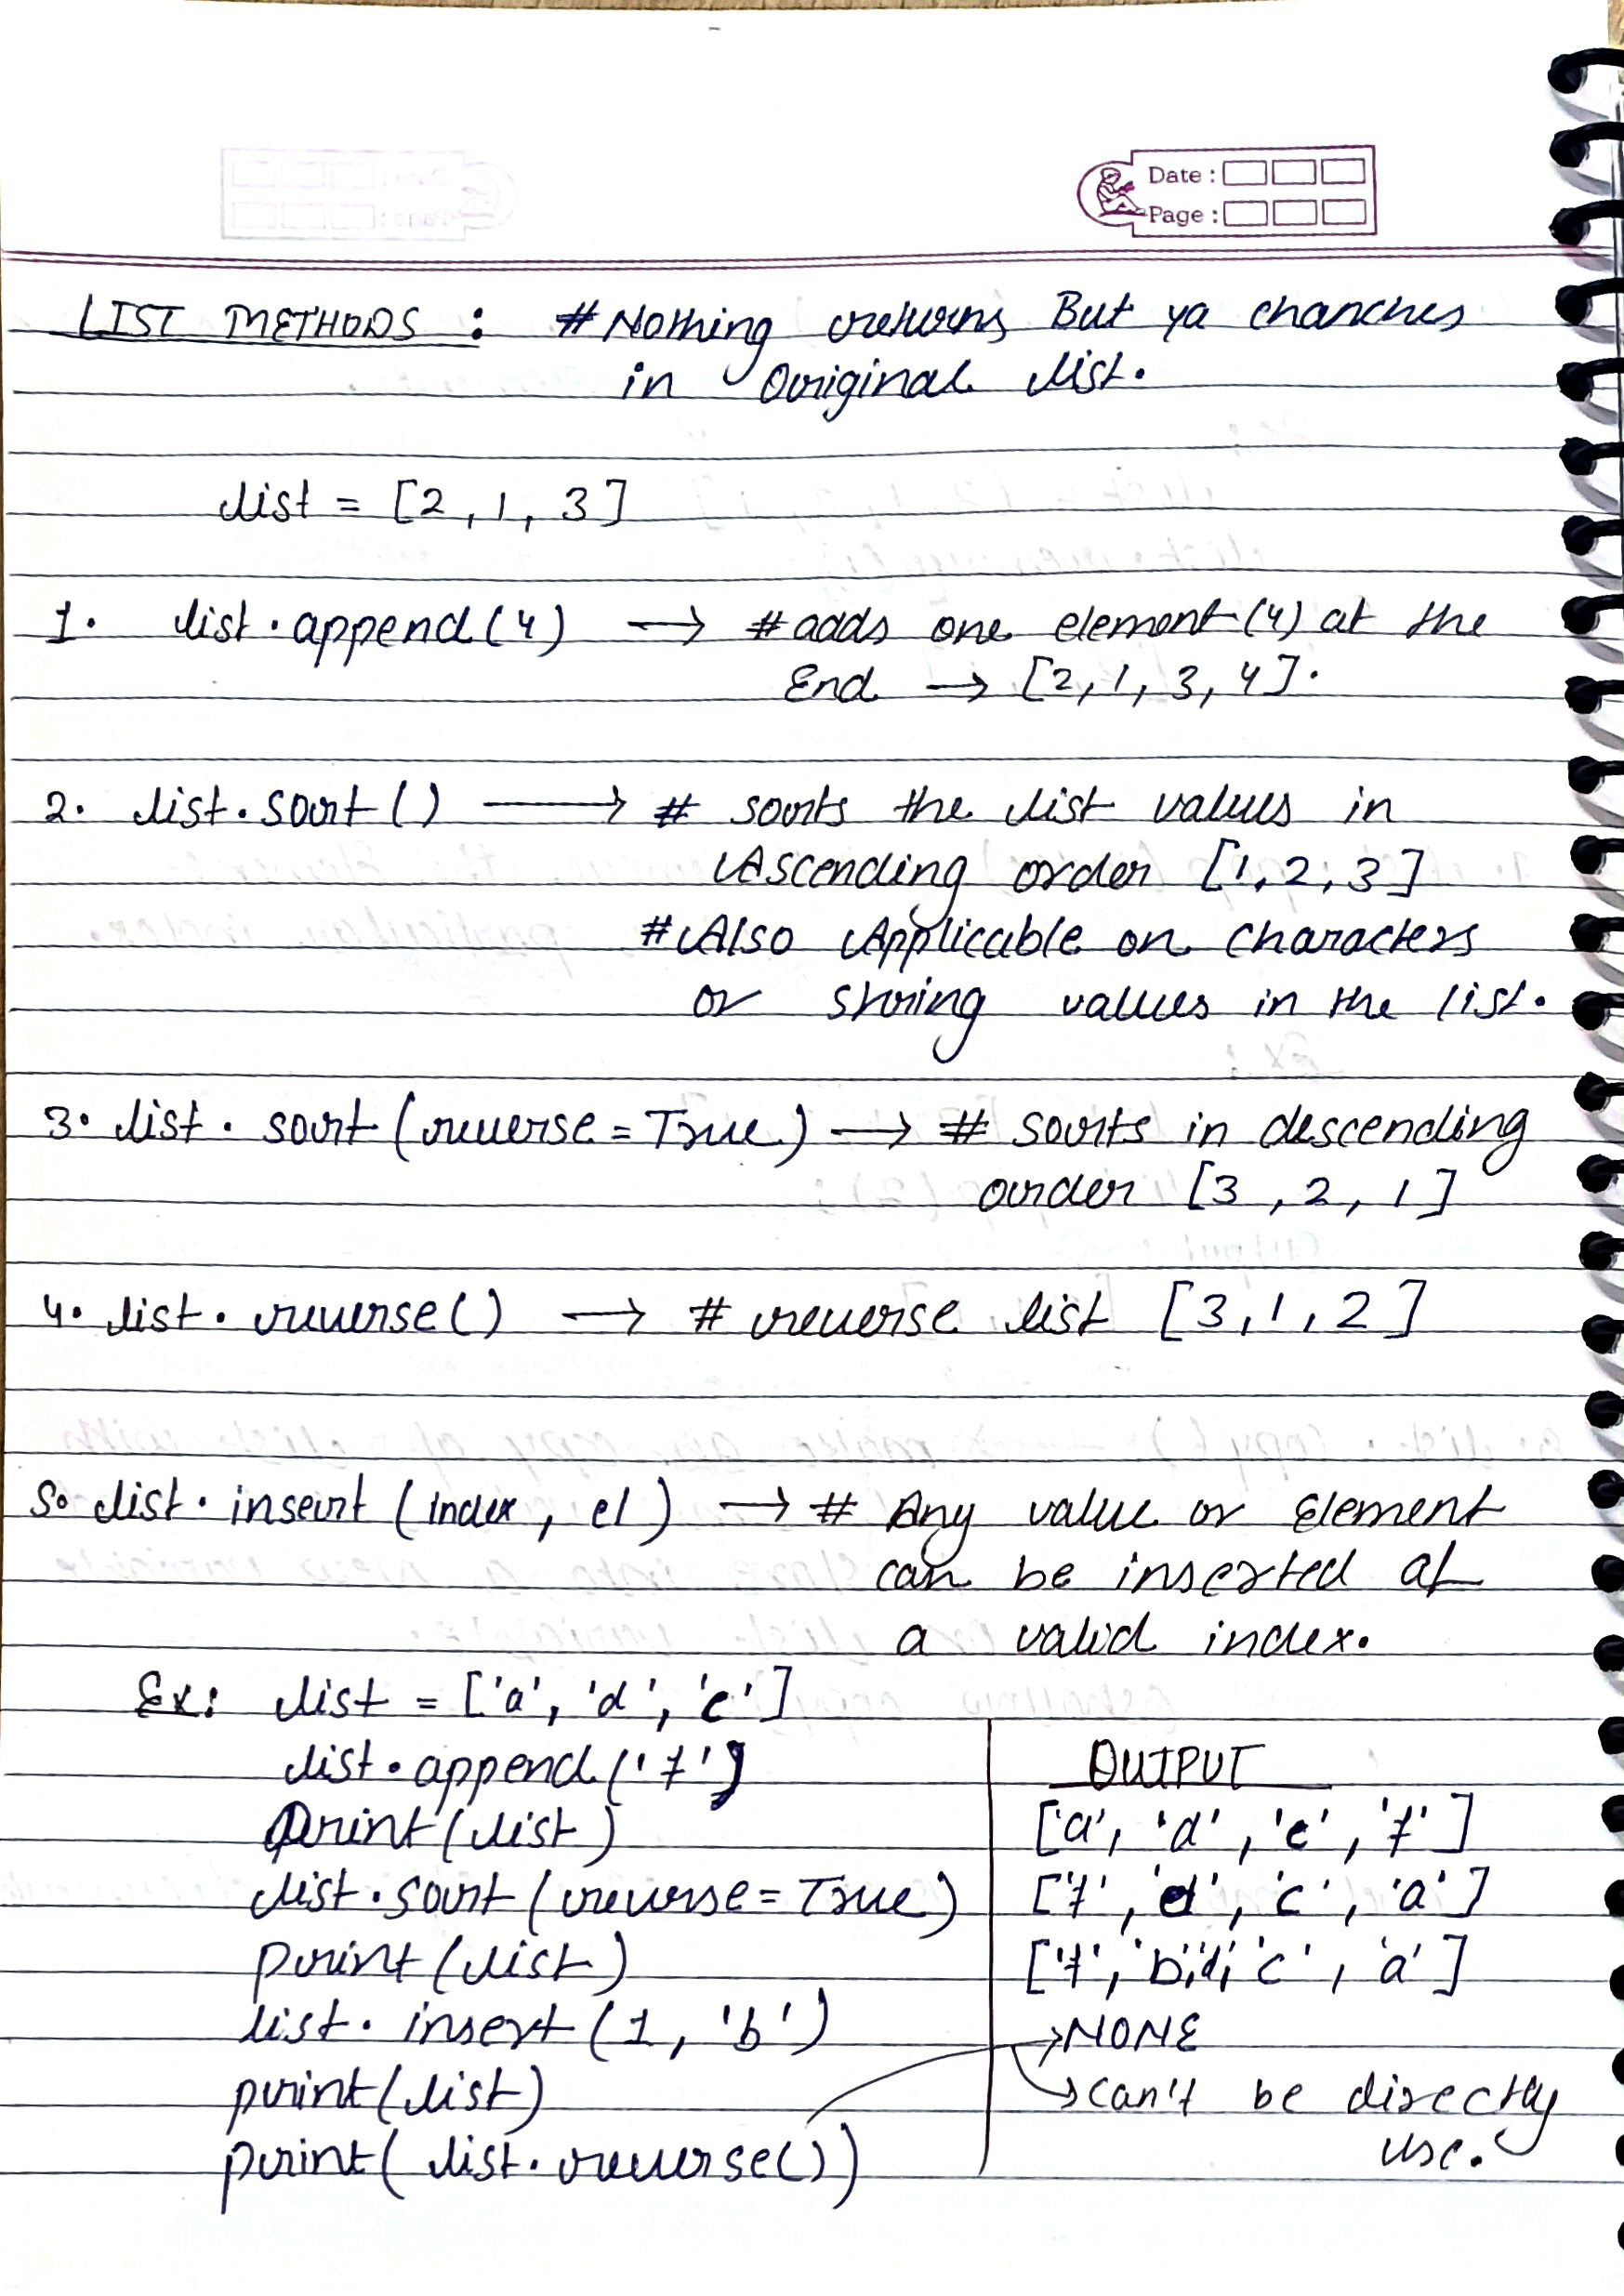 Date :
Page :
LIST METHODS : #Nothing returns But ya chanches
in Original list.
list = [2, 1, 3]
1. list.append(4) → #adds one element(4) at the
End → [2, 1, 3, 4].
2. list.sort() → # sorts the list values in
Ascending order [1, 2, 3]
#Also Applicable on characters
or string values in the list.
3. list.sort(reverse=True) → # sorts in descending
order [3, 2, 1]
4. list.reverse() → # reverse list [3, 1, 2]
5. list.insert(Index, el) → # Any value or Element
can be inserted at
a valid index.
Ex: list = ['a', 'd', 'c']
list.append('f')
print(list)
list.sort(reverse=True)
print(list)
list.insert(1, 'b')
print(list)
print(list.reverse())
OUTPUT
['a', 'd', 'c', 'f']
['f', 'd', 'c', 'a']
['f', 'b', 'd', 'c', 'a']
→NONE
→can't be directly
use.